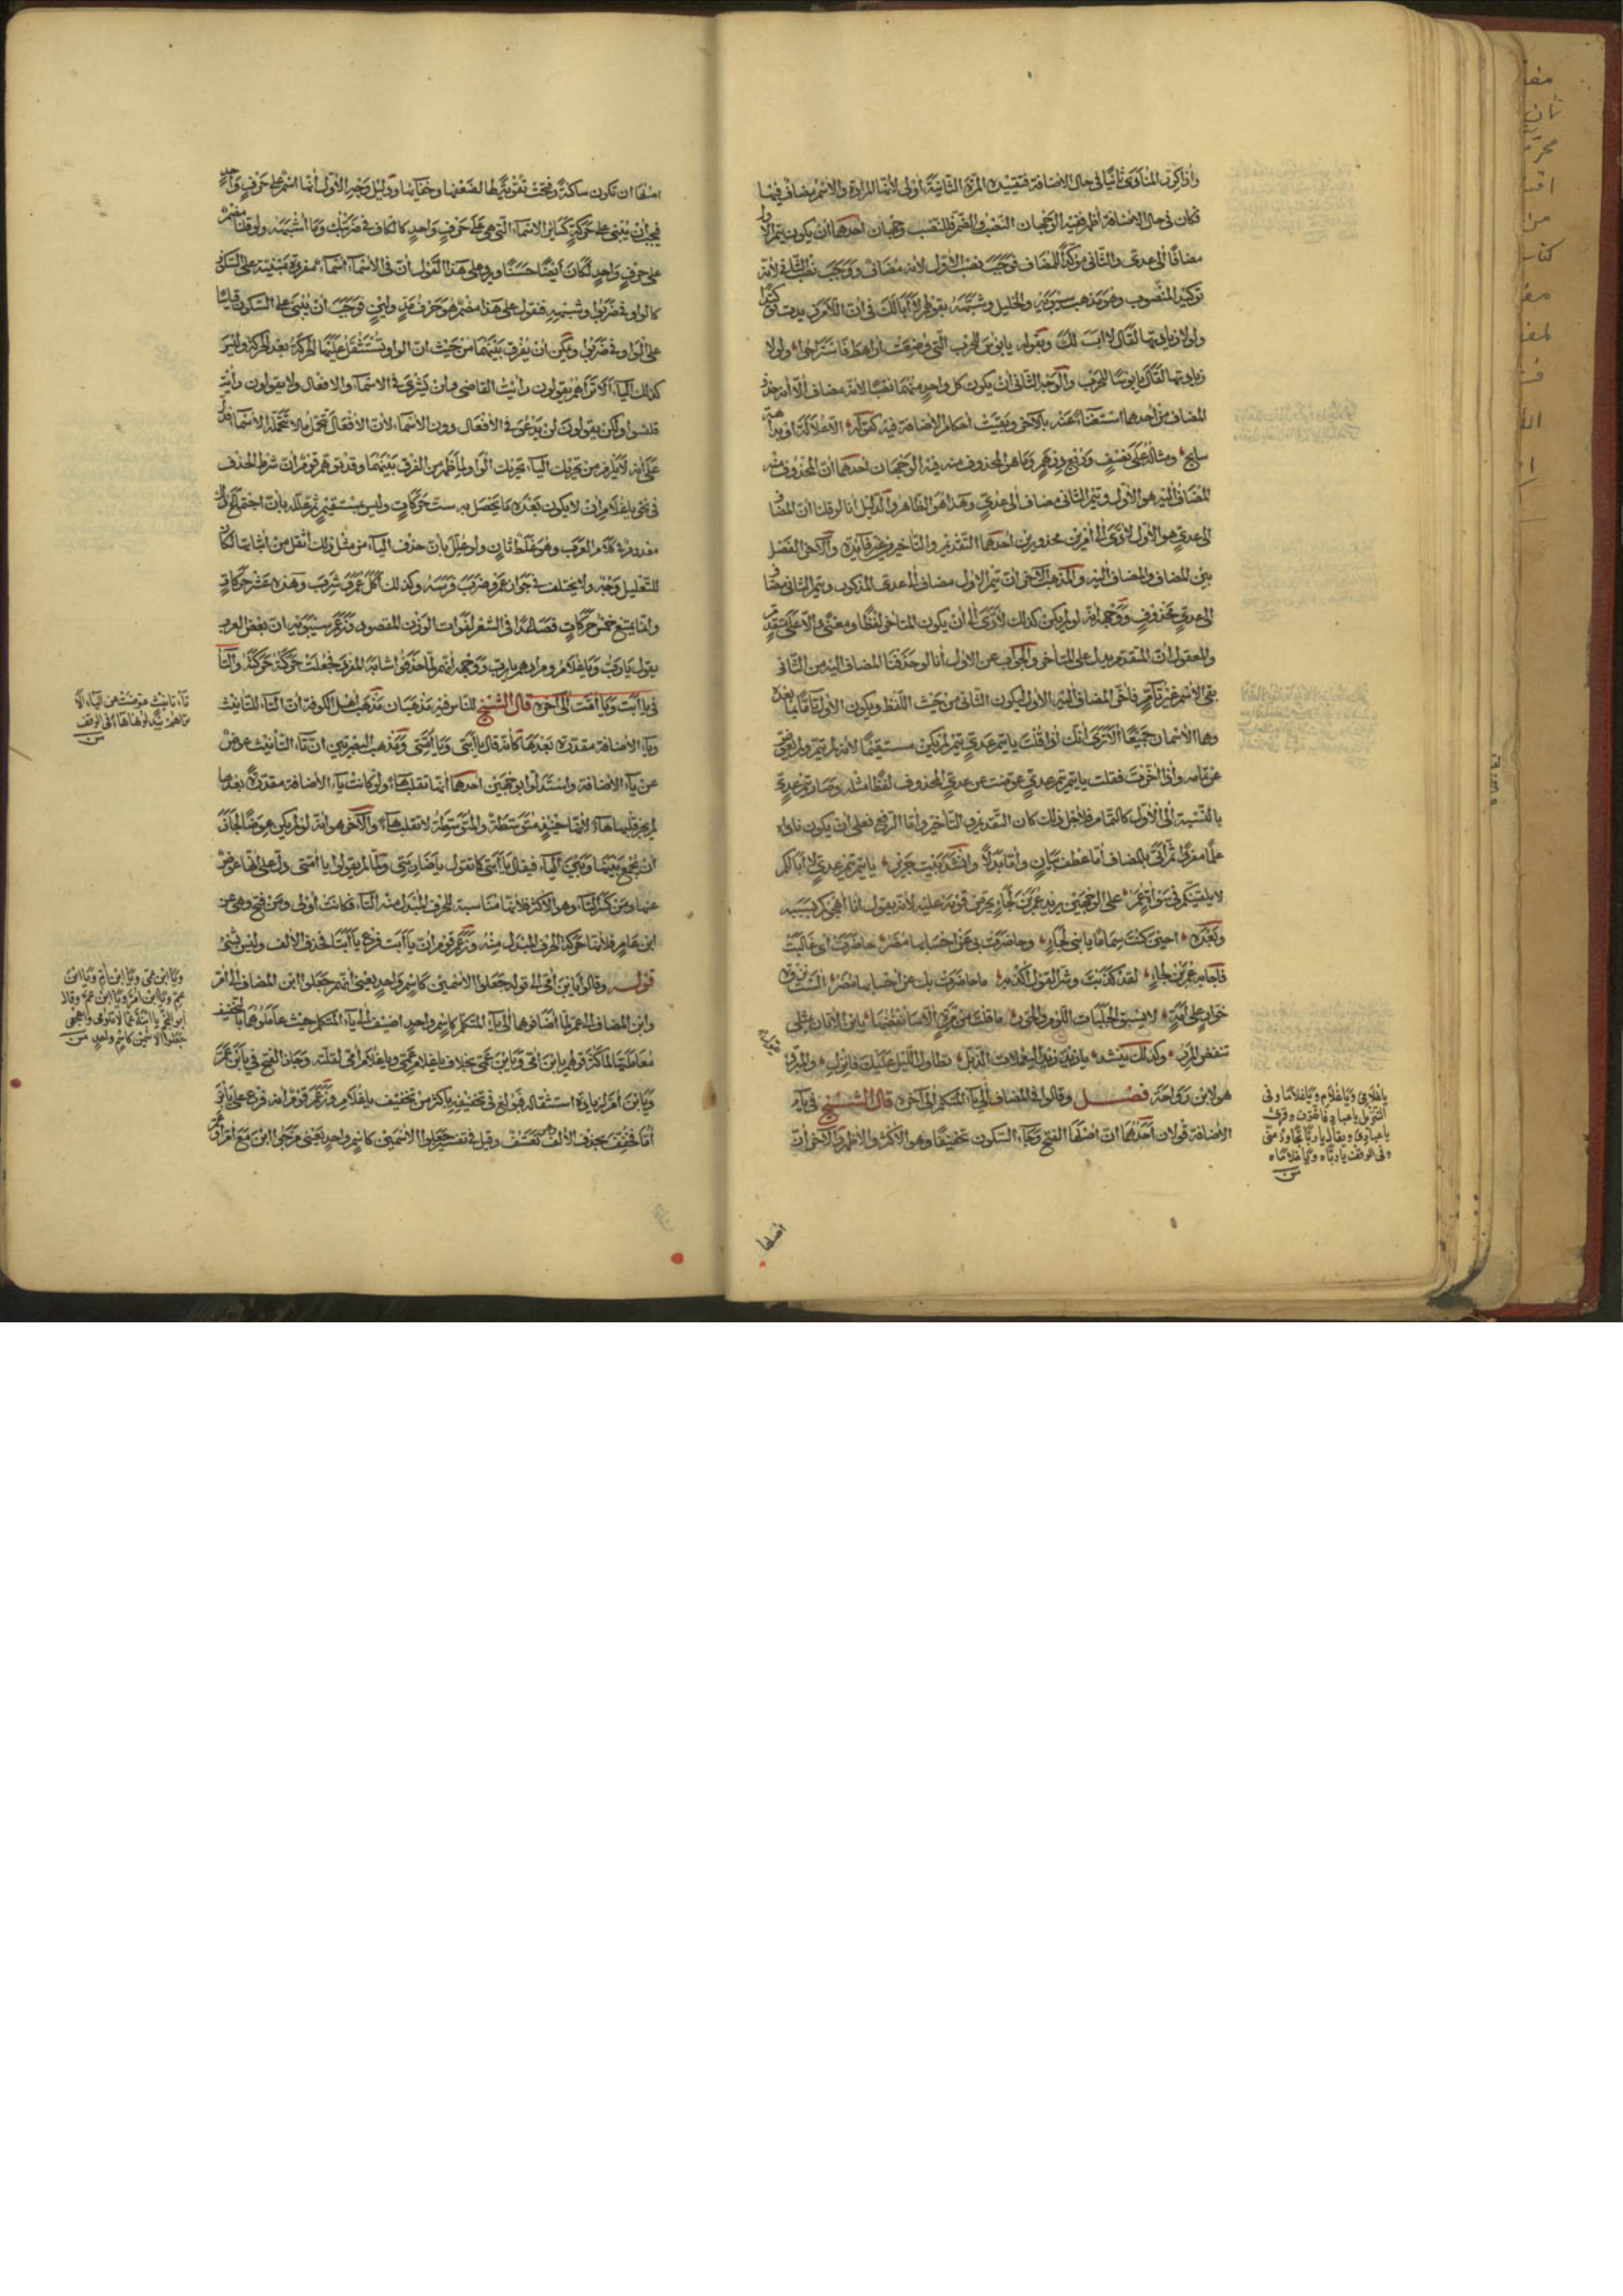 واذا كرر المنادى ثانيًا في حال الاضافة فتقييده المرة الثانية أولى لأنها المرادة والاسم مضاف فيها
فكان في حال الاضافة أظهر ففيه الوجهان النصب والضم فللنصب وجهان أحدهما أن يكون تيم الأول
مضافًا الى عدي والثاني مؤكدًا للمضاف فوجب نصب الأول لأنه مضاف ووجب نصب الثاني لأنه
توكيد المنصوب وهو مذهب سيبويه والخليل وشبهه بقولهم لا أبا لك في أن اللام زيدت توكيدا
ولولا زيادتها لقال لا أبك وبقوله يا بؤس للحرب التي وضعت أراهط فاستراحوا ولولا
زيادتها لقال يا بؤسا للحرب والوجه الثاني أن يكون كل واحد منهما نصبا لأنه مضاف إلا أنه حذف
المضاف من أحدهما استغناء عنه بالآخر وبقيت أحكام الاضافة فيه كقوله الا علالة او بداهة
سابح ومثاله على نصف وربع درهم وما هو المحذوف منه فيه الوجهان أحدهما أن المحذوف منه
المضاف اليه هو الأول وتيم الثاني مضاف الى عدي وهذا هو الظاهر والدليل أنا لو قلنا ان المضاف
الى عدي هو الأول لأدى الى أمرين محذورين أحدهما التقديم والتأخير من غير فائدة والآخر الفصل
بين المضاف والمضاف اليه والمذهب الآخر أن تيم الأول مضاف الى عدي المذكور وتيم الثاني مضاف
الى عدي محذوف ووجهه أنه لو لم يكن كذلك لأدى الى أن يكون المتأخر لفظا ومعنى دالا على متقدم
والمعقول أن المتقدم يدل على المتأخر والجواب عن الأول أنا لو حذفنا المضاف اليه من الثاني
بقي الاسم غير تام فأخر المضاف اليه الأول ليكون الثاني من حيث اللفظ ويكون الأول تاما بما بعده
وهما الاسمان جميعا ألا ترى أنك اذا قلت يا تيم عدي تيم لم يكن مستقيما لأنه لم يتم ولم يعوض
عن تمامه واذا أخرت فقلت يا تيم تيم عدي عوضت عن عدي المحذوف لفظا مثله وصار تيم عدي
بالنسبة الى الأول كالتمام فلأجل ذلك كان التقديم والتأخير وأما الرفع فعلى أن يكون نادى
علما مفردا ثم أتى بالمضاف اما عطف بيان واما بدلا وانشد بيت جرير يا تيم تيم عدي لا أبا لكم
لا يلقينكم في سوأة عمر على الوجهين يريد عمر بن لجأ يحرض قومه عليه لأنه يقول انا أهجوكم بسببه
وبعده احين كنت سماما يا بني لجأ وخاطرت بي عن احسابها مضر خاطرت أي غالبت
فأجابه عمر بن لجأ لقد كذبت وشر القول أكذبه ما خاطرت بك عن احسابها مضر الست نزوة
خوار على أمة لا يسبق الحلبات اللؤم والخور
تنفض المرر وكذلك ينشد يا زيد زيد اليعملات الذبل تطاول الليل عليك فانزل والمبرد
هو لابن رواحة فصل وقالوا في المضاف الى ياء المتكلم الى آخره قال الشيخ في ياء
الاضافة قولان أحدهما ان أصلها الفتح وجاء السكون تخفيفا وهو الأكثر والأظهر والآخر أن
يا غلامي ويا غلام ويا غلاما وفي
التنزيل يا عباد فاتقون وقرئ
يا عبادي ويقال يا ربا تجاوز عني
وفي الوقف يا رباه ويا غلاماه
أصلها
أصلها ان تكون ساكنة وفتحت تقوية لها لضعفها وخفائها ودليل وجه الأول أنها اسم على حرف واحد
فيجب أن يبنى على حركة كسائر الاسماء التي هي على حرف واحد كالكاف في ضربتك وما أشبهه ولو قلنا مضمر
على حرف واحد لكان أيضا حسنا ويرد على هذا القول أن في الأسماء أسماء مفردة مبنية على السكون
كالواو في ضربوا وشبهه فنقول على هذا مضمر هو حرف مد ولين فوجب أن يبنى على السكون قياسا
على الواو في ضربوا ويمكن أن يفرق بينهما من حيث ان الواو تستثقل عليها الحركة بعد الحركة وليس
كذلك الياء ألا تراهم يقولون رأيت القاضي ولن يرمي في الاسماء والافعال ولا يقولون رأيت
قلنسوا ولكن يقولون لن يدعو في الأفعال دون الأسماء لأن الأفعال تحتمل ما لا تحتمله الأسماء فدل
على أنه لا يلزم من تحريك الياء تحريك الواو لما ظهر من الفرق بينهما وقد توهم قوم أن شرط الحذف
في نحو يا غلام أن لا يكون بعده ما يحصل به ست حركات وليس بمستقيم ثم علله بأن اجتماع ذلك
معدوم في كلام العرب وهو غلط ثان ولو علل بأن حذف الياء من مثل ذلك أثقل من اثباتها لكان
للتعليل وجه ولا يختلف في جواز عمرو ضرب فرسه وكذلك أكل عمرو شرب وهذه عشر حركات
وانما يمتنع خمس حركات فصاعدا في الشعر لفوات الوزن المقصود وزعم سيبويه ان بعض العرب
يقول يا رب ويا غلام ومرادهم يا رب ووجهه أنهم لما حذفوا شابه المفرد فجعلت حركته حركته والتاء
في يا أبت ويا أمت الى آخره قال الشيخ للناس فيه مذهبان مذهب اهل الكوفة أن التاء للتأنيث
وياء الاضافة مقدرة بعدها كأنه قال يا أبتي ويا أمتي ومذهب البصريين ان تاء التأنيث عوض
عن ياء الاضافة واستدلوا بوجهين أحدهما أنها تقلب هاء ولو كانت ياء الاضافة مقدرة بعدها
لم يجز قلبها هاء لأنها حينئذ متوسطة والمتوسطة لا تقلب هاء والآخر هو أنه لو لم يكن عوضا لجاز
أن يجمع بينها وبين الياء فيقال يا أبتي كما تقول يا ضاربتي ولما لم يقولوا يا أمتي دل على أنها عوض
عنها ومن كسر التاء وهو الأكثر فلأنها مناسبة للحرف المبدل منه التاء فكانت أولى ومن فتح وهي عن
ابن عامر فلأنها حركة الحرف المبدل منه وزعم قوم أن يا أبت فرع يا أبتا فحذف الألف وليس بشيء
قوله وقالوا يا ابن أمي الى قوله جعلوا الاسمين كاسم واحد يعني أنهم جعلوا ابن المضاف الى أم
وابن المضاف الى عم لما أضافوهما الى ياء المتكلم كاسم واحد اضيف الى ياء المتكلم حيث عاملوهما بالتخفيف
معاملتها لما كثر قولهم يا ابن أمي ويا ابن عمي بخلاف يا غلام عمي ويا غلام أمي لقلته وجاز الفتح في يا ابن عم
ويا ابن أم لزيادة استثقاله فبولغ في تخفيفه بأكثر من تخفيف يا غلام وزعم قوم أنه فرع على يا ابن
أما فخفف بحذف الألف تعسف وقيل فتح جعلوا الاسمين كاسم واحد يعني مزجوا ابن مع أم أو عم
تاء تأنيث عوضت عن الياء ألا
تراهم يبدلونها هاء في الوقف
ويا ابن عمي ويا ابن أم ويا ابن
عم ويا ابن أم ويا ابن عم وقال
أبو النجم يا ابنة عما لا تلومي واهجعي
جعلوا الاسمين كاسم واحد